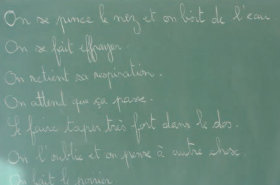 On se pince le nez et on boit de l'eau
On se fait effrayer.
On retient sa respiration.
On attend que ça passe.
Se faire taper très fort dans le dos.
On l'oublie et on pense à autre chose.
On fait le poirier